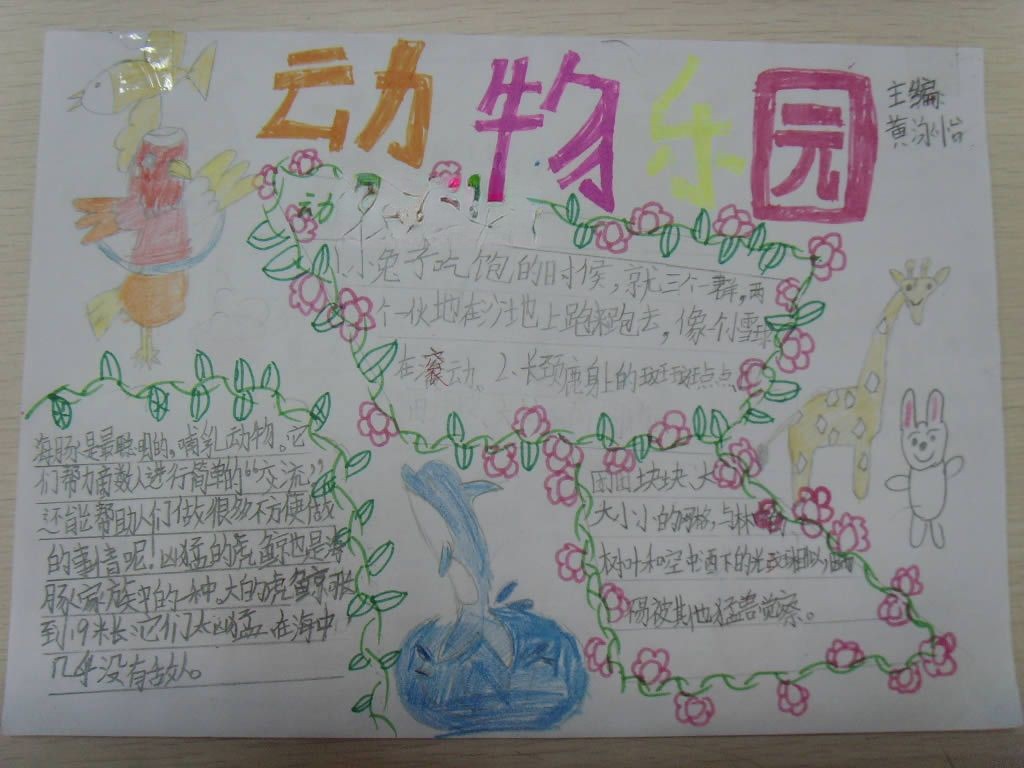 动物乐园
主编
黄泳怡
动
1、小兔子吃饱的时候，就三个一群，两
个一伙地在沙地上跑来跑去，像个雪球
在滚动。2、长颈鹿身上的斑斑点点、
田田块块、大
大小小的网格，与林
树叶和空中洒下的光斑相似，
易被其他猛兽觉察。
海豚是最聪明的哺乳动物。它
们帮力商数人进行简单的“交流”，
还能帮助人们做很多不方便做
的事情呢！凶猛的虎鲸也是海
豚家族中的一种。大的虎鲸长
到19米长，它们太凶猛，在海中
几乎没有敌人。